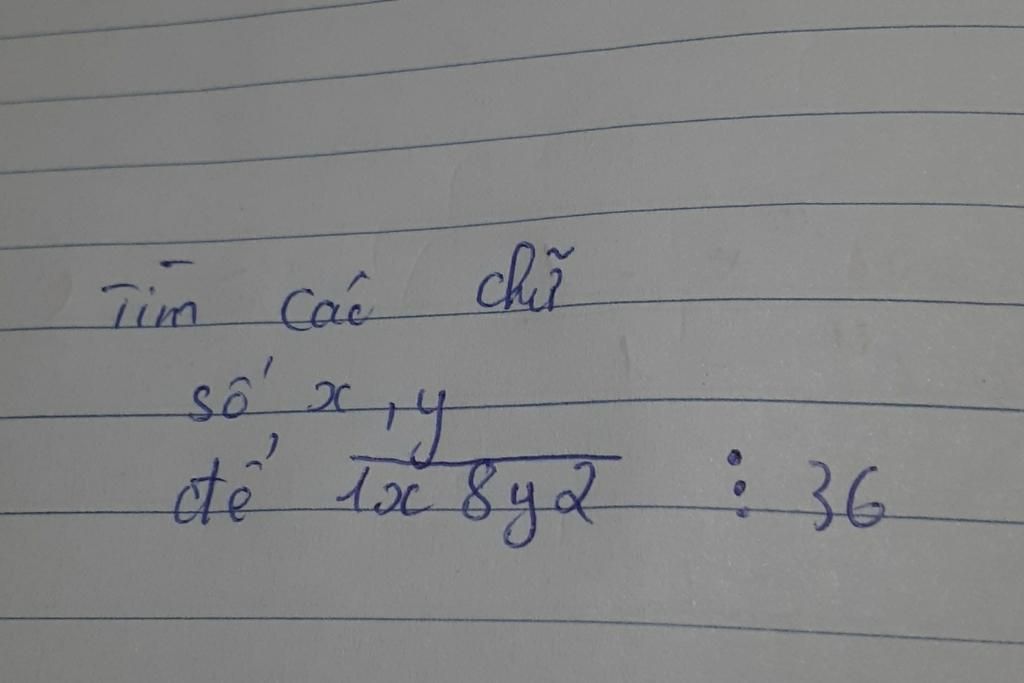 Tìm các chữ
số x, y
để \overline{1x8y2} ⋮ 36